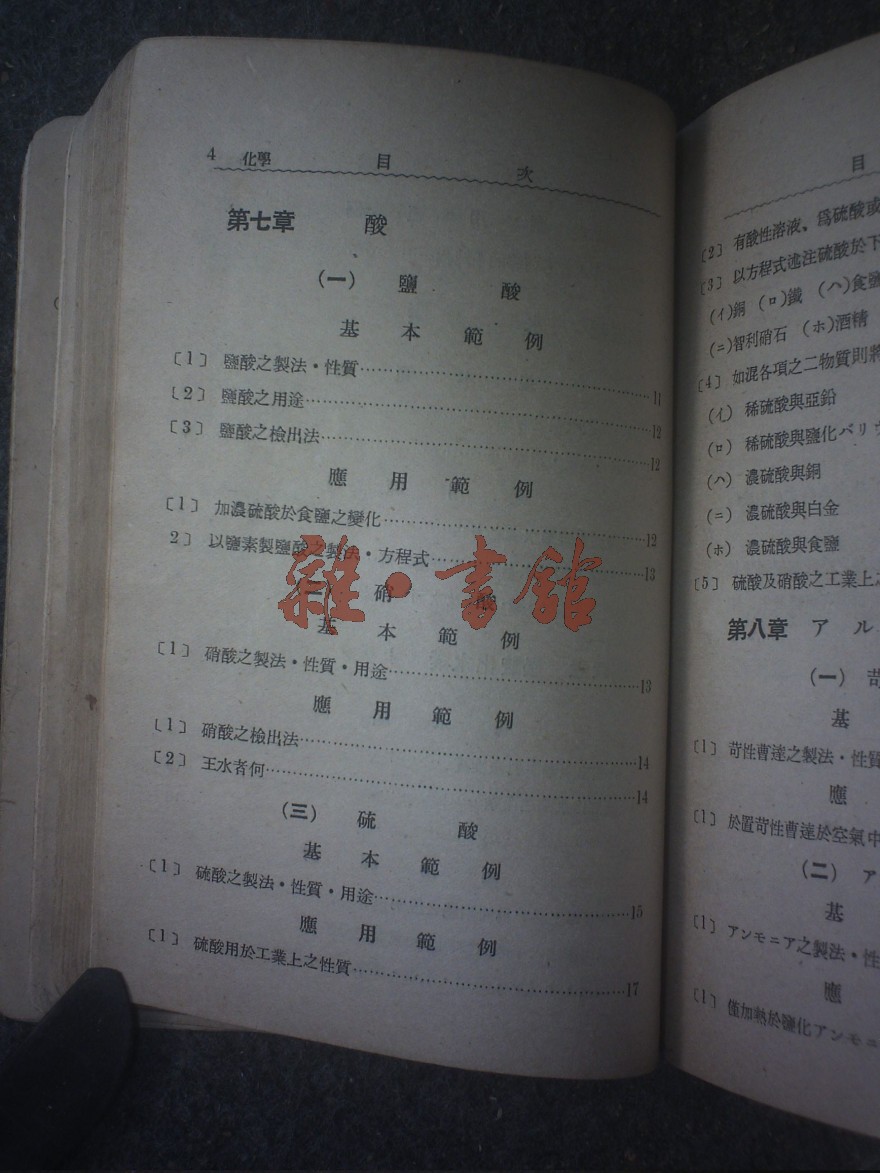 4 化學 目 次
第七章 酸
(一) 鹽 酸
基 本 範 例
〔1〕 鹽酸之製法·性質……11
〔2〕 鹽酸之用途……12
〔3〕 鹽酸之檢出法……12
應 用 範 例
〔1〕 加濃硫酸於食鹽之變化……12
2〕 以鹽素製鹽酸之製法·方程式……13
硝 酸
基 本 範 例
〔1〕 硝酸之製法·性質·用途……13
應 用 範 例
〔1〕 硝酸之檢出法……14
〔2〕 王水者何……14
(三) 硫 酸
基 本 範 例
〔1〕 硫酸之製法·性質·用途……15
應 用 範 例
〔1〕 硫酸用於工業上之性質……17
雜·書館
目
〔2〕 有酸性溶液、爲硫酸或
〔3〕 以方程式述注硫酸於下
(イ)銅 (ロ)鐵 (ハ)食鹽
(ニ)智利硝石 (ホ)酒精
〔4〕 如混各項之二物質則將
(イ) 稀硫酸與亞鉛
(ロ) 稀硫酸與鹽化バリウ
(ハ) 濃硫酸與銅
(ニ) 濃硫酸與白金
(ホ) 濃硫酸與食鹽
〔5〕 硫酸及硝酸之工業上之
第八章 アル
(一) 苛
基
〔1〕 苛性曹達之製法·性質
應
〔1〕 於置苛性曹達於空氣中
(二) ア
基
〔1〕 アンモニア之製法·性
應
〔1〕 僅加熱於鹽化アンモニ